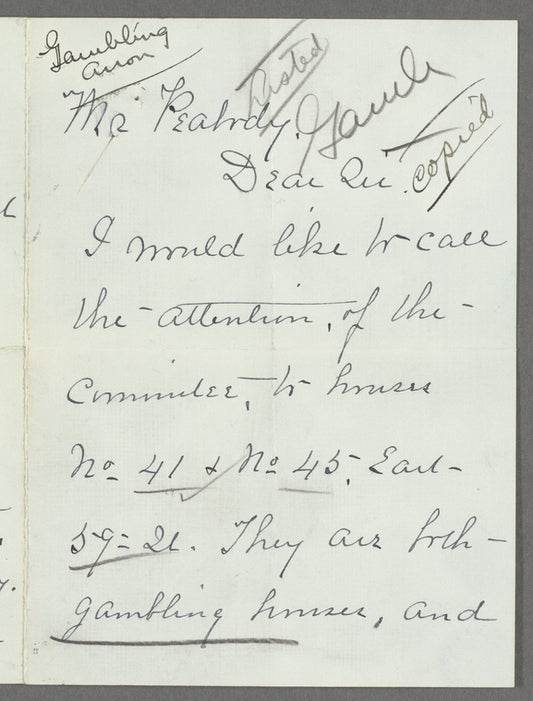 Gambling
anon
listed
Gamb
copied
Mr Peabody.
Dear Sir.
I would like to call
the attention, of the
Committee, to houses
No 41 & No 45, East
59= St. They are both
gambling houses, and